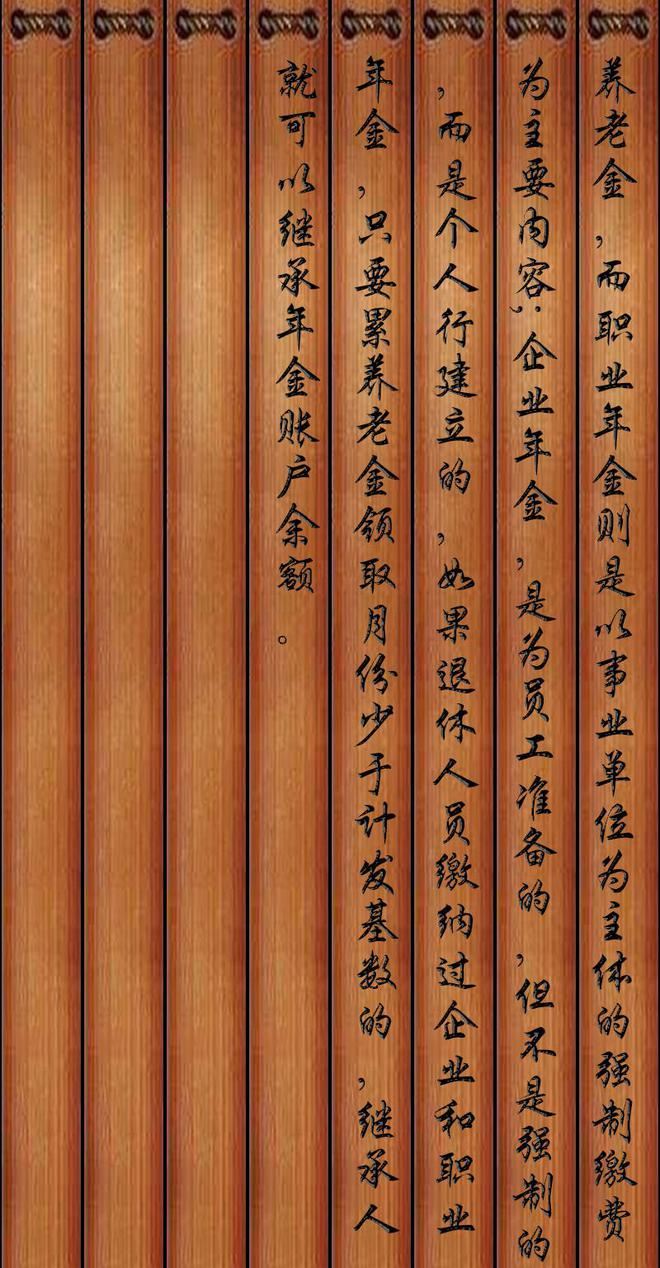 养老金，而职业年金则是以事业单位为主体的强制缴费
为主要内容；企业年金，是为员工准备的，但不是强制的
，而是个人行建立的，如果退休人员缴纳过企业和职业
年金，只要累养老金领取月份少于计发基数的，继承人
就可以继承年金账户余额。